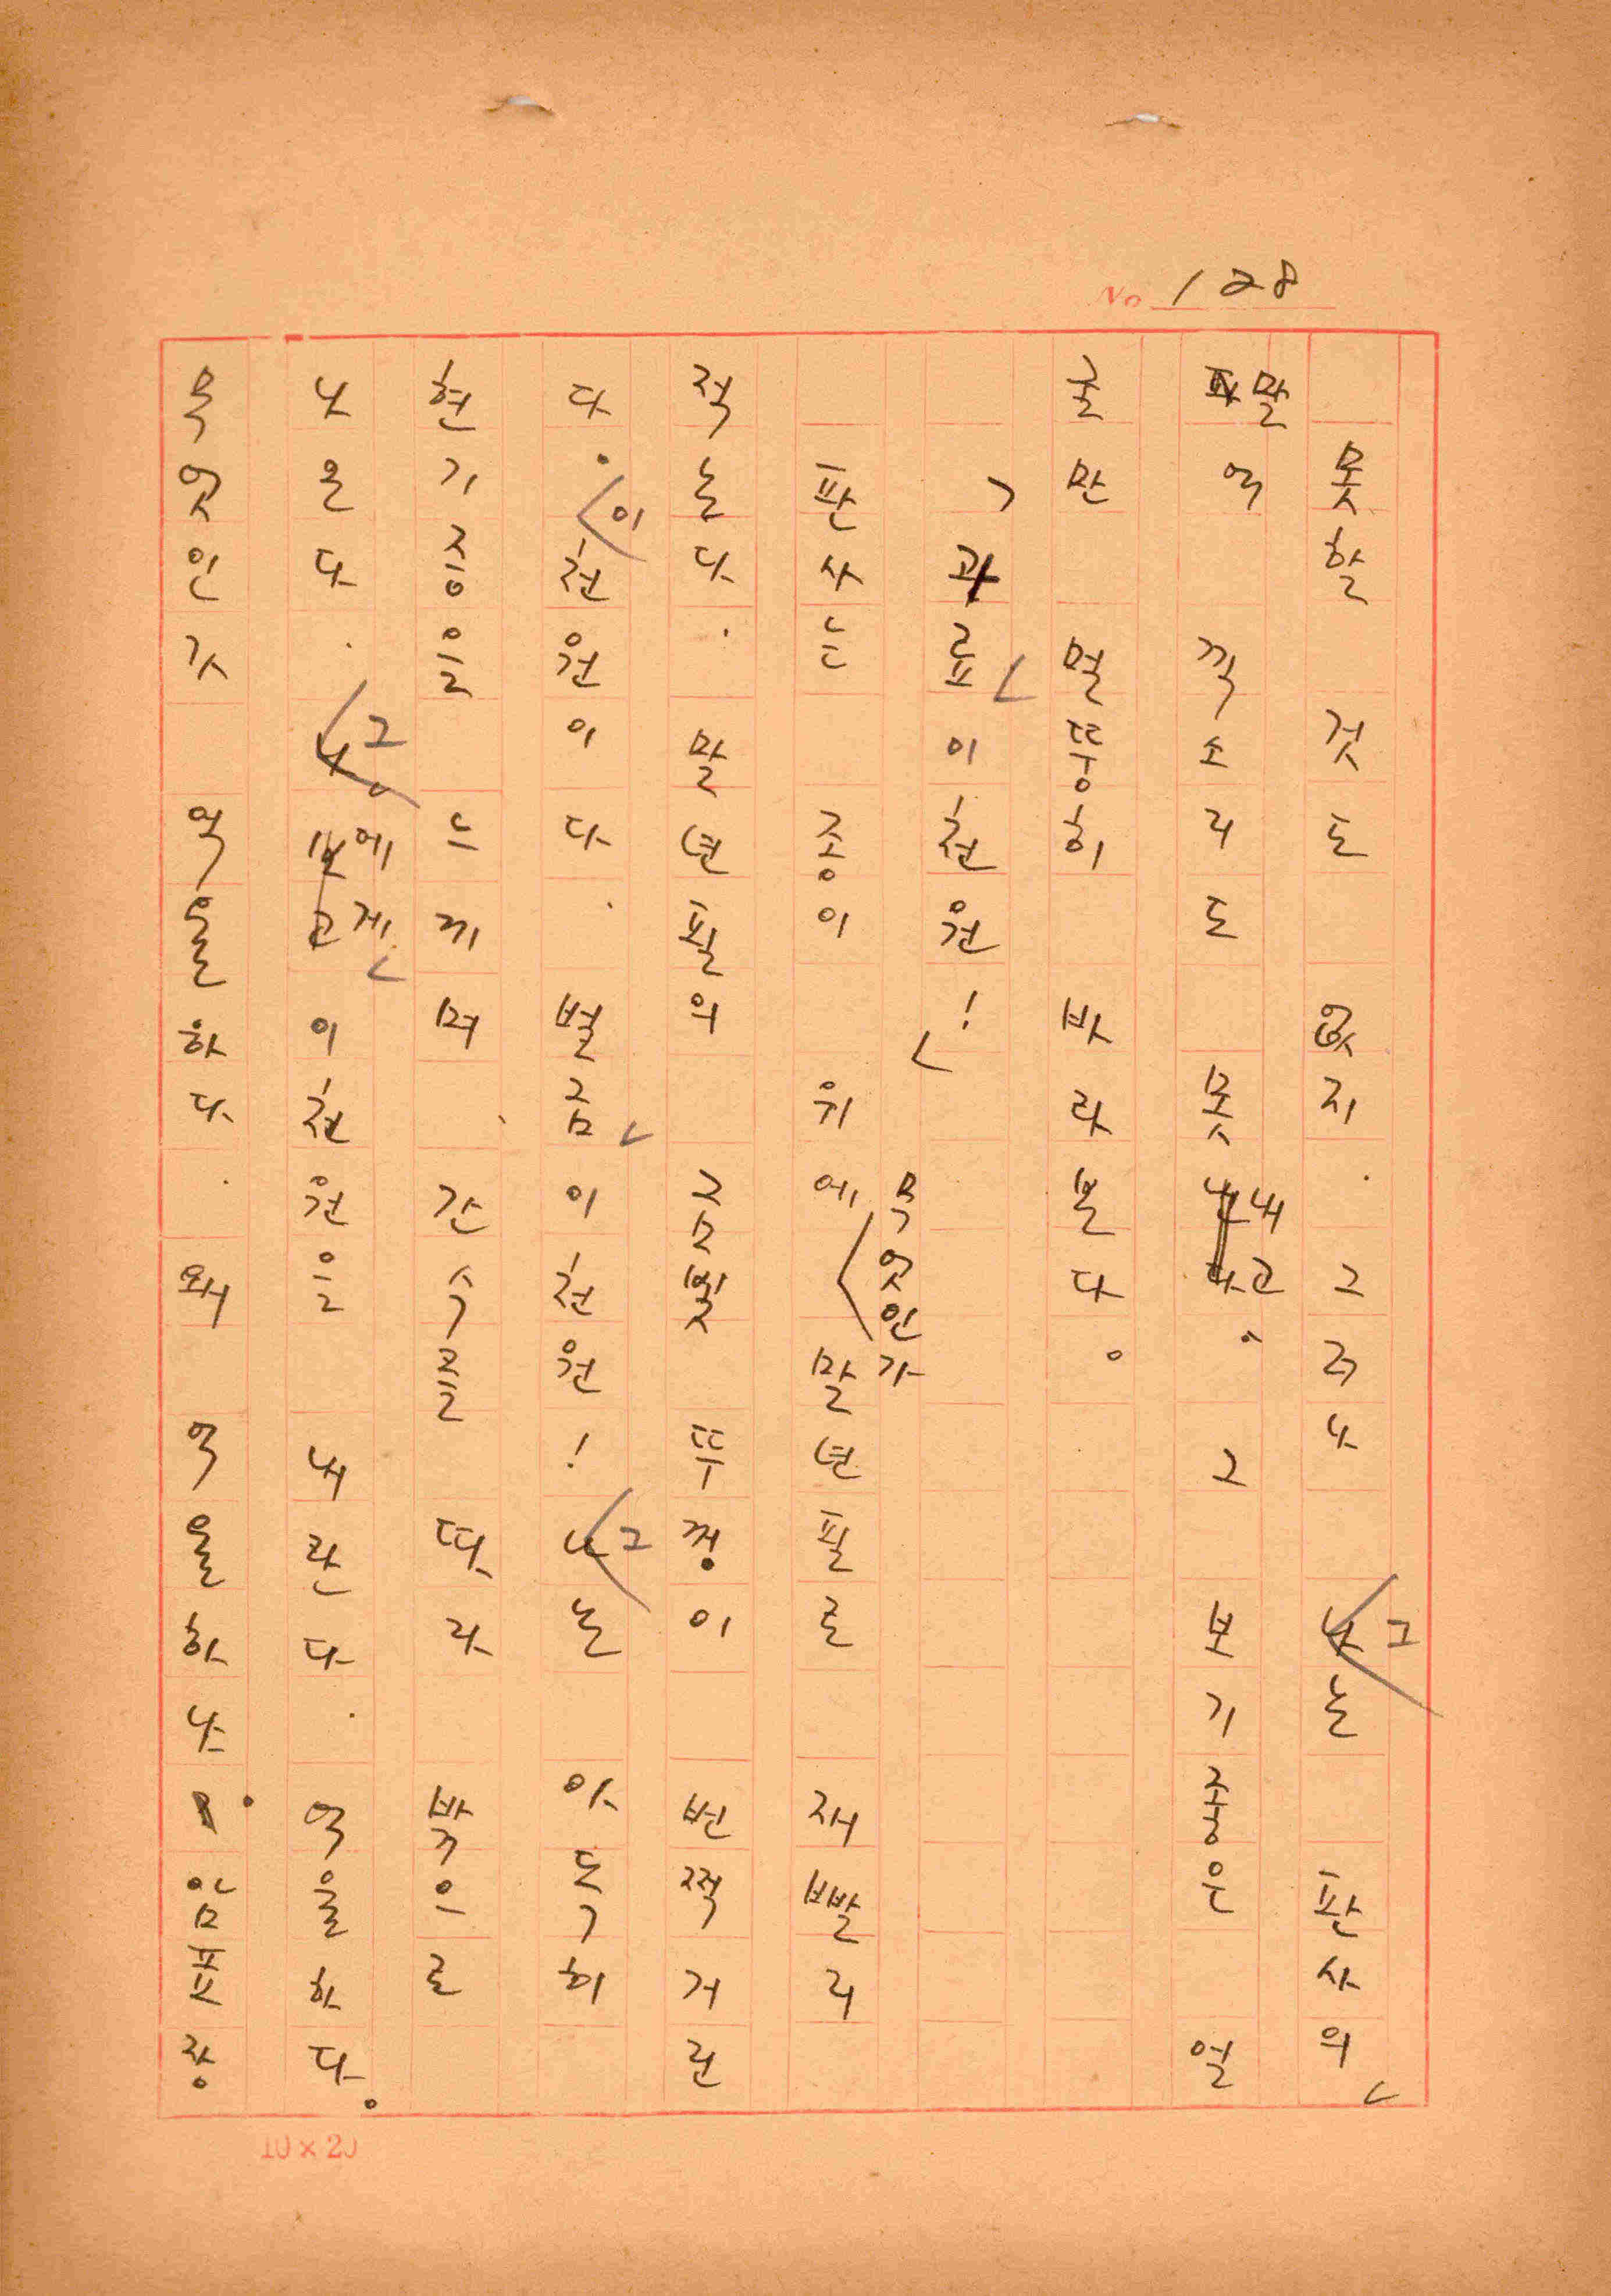 No 128
못할 것도 없지. 그러나 그는 판사의
말 역 끽소리도 못 내고. 그 보기 좋은 얼
굴만 멀뚱히 바라본다.
「과료 이천원!」
판사는 종이 위에 무엇인가 만년필로 재빨리
적는다. 만년필의 금빛 뚜껑이 번쩍거린
다. 이천원이다. 벌금 이천원! 그는 아득히
현기증을 느끼며, 간수를 따라 밖으로
나온다. 그에게 이천원은 내란다. 억울하다.
무엇인가 억울하다. 왜 억울하나. 암표장
10×20